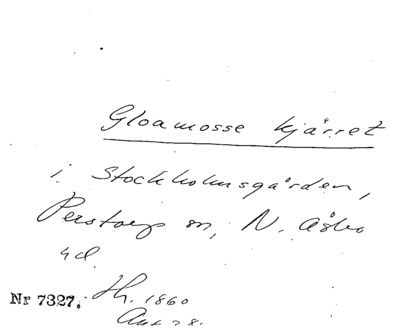 Gloamosse kjärret
i Stockholmsgården,
Perstorp sn, N. Åsbo
hd
Nr 7327. Lh. 1860
Akt 28.